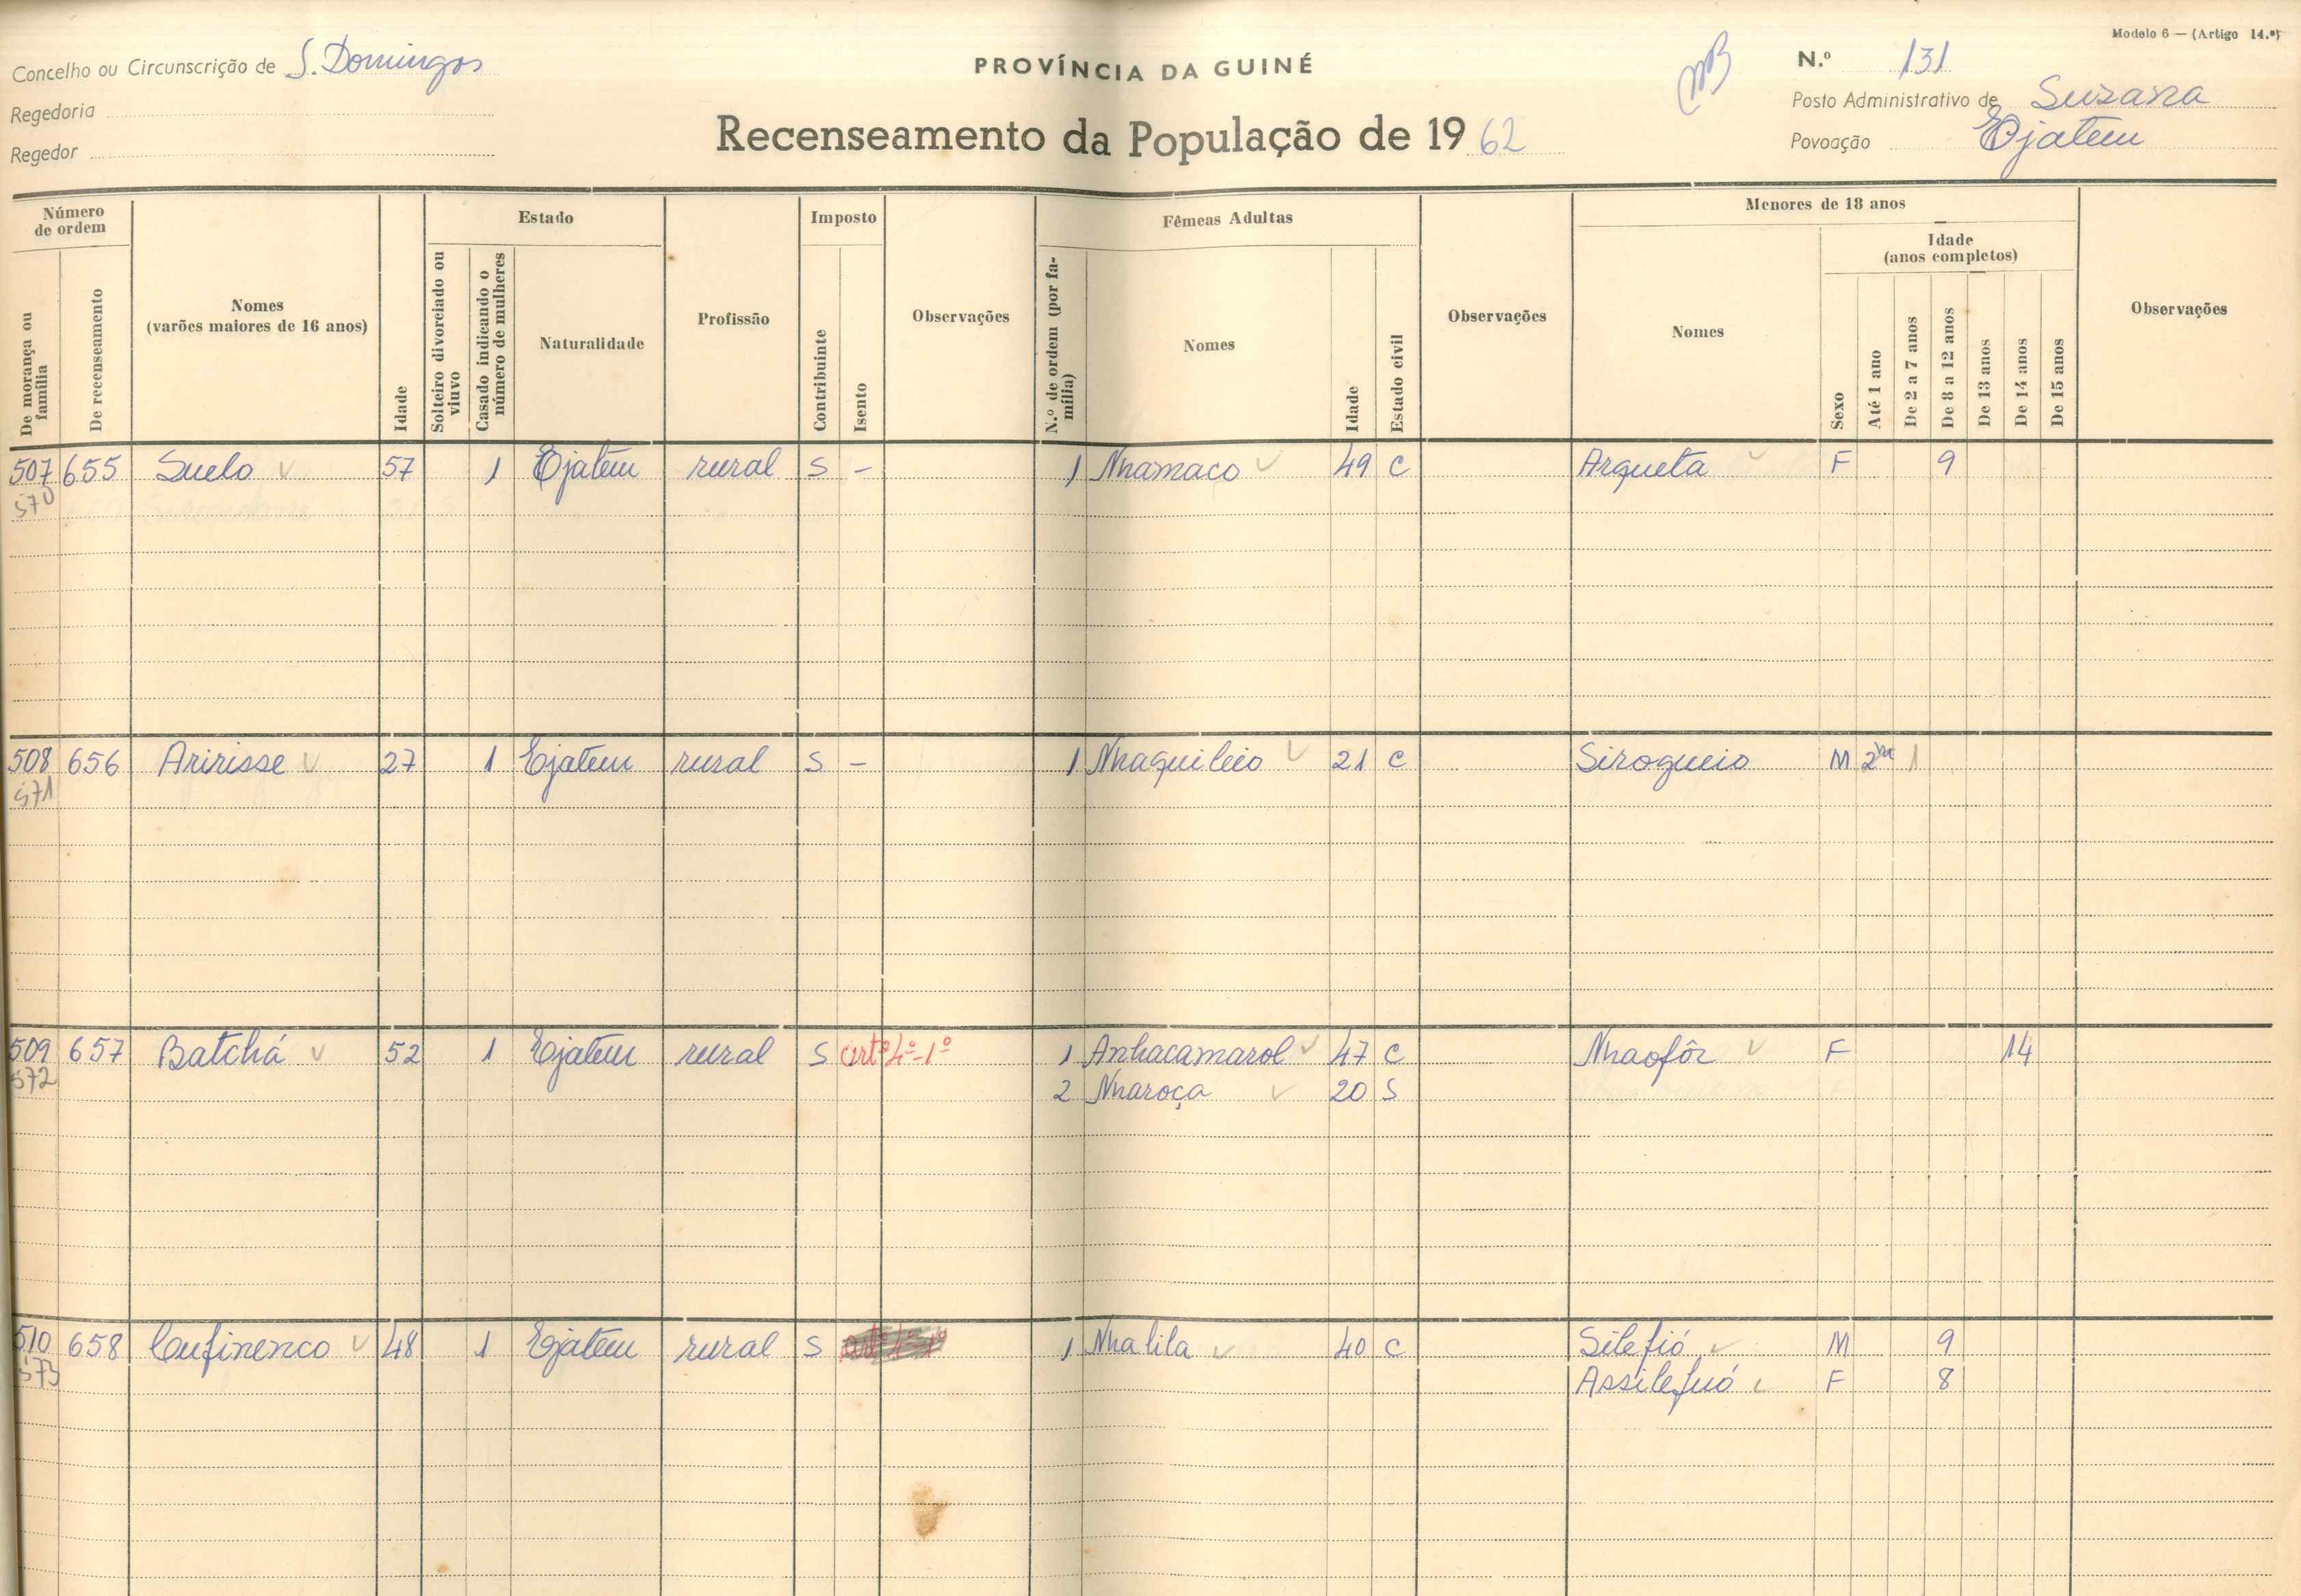 Modelo 6 — (Artigo 14.º)
Concelho ou Circunscrição de S. Domingos
PROVÍNCIA DA GUINÉ
N.º 131
Regedoria
Posto Administrativo de Suzana
Regedor
Recenseamento da População de 1962
Povoação Ejatem
Número de ordem
Estado
Imposto
Fêmeas Adultas
Menores de 18 anos
Idade (anos completos)
De morança ou família
De recenseamento
Nomes (varões maiores de 16 anos)
Idade
Solteiro divorciado ou viuvo
Casado indicando o número de mulheres
Naturalidade
Profissão
Contribuinte
Isento
Observações
N.º de ordem (por família)
Nomes
Idade
Estado civil
Observações
Nomes
Sexo
Até 1 ano
De 2 a 7 anos
De 8 a 12 anos
De 13 anos
De 14 anos
De 15 anos
Observações
507 655 Suelo 57 1 Ejatem rural S - 1 Nhamaco 49 C Arqueta F 9
570
508 656 Aririsse 27 1 Ejatem rural S - 1 Nhaquileio 21 C Sirogueio M 2m 1
571
509 657 Batchá 52 1 Ejatem rural S artº 4º-1º 1 Anhacamarol 47 C Nhaofôr F 14
572 2 Nharoça 20 S
510 658 Cufinenco 48 1 Ejatem rural S 1 Nhalila 40 C Silefió M 9
573 Assilefuó F 8